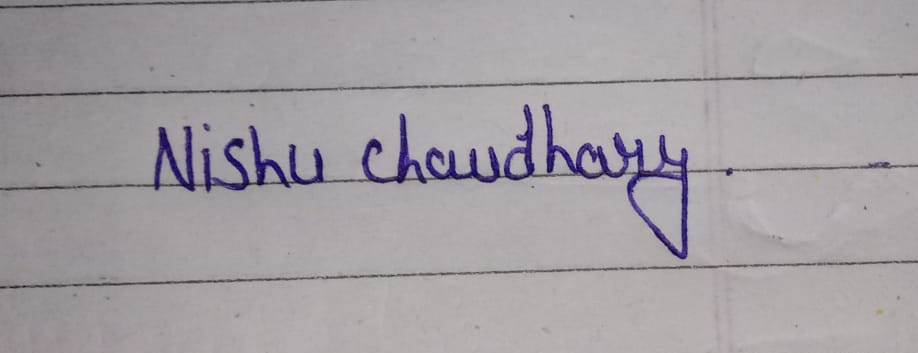 Nishu chaudhary.